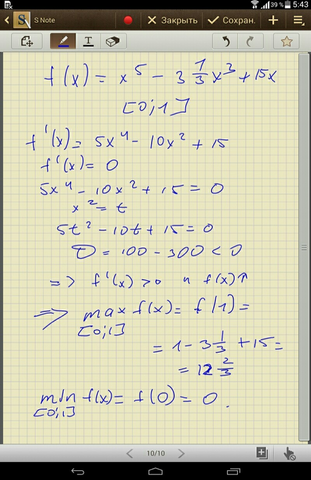 39 % 5:43
S Note
Закрыть
Сохран.
f(x) = x⁵ - 3 1/3 x³ + 15x
[0;1]
f'(x) = 5x⁴ - 10x² + 15
f'(x) = 0
5x⁴ - 10x² + 15 = 0
x² = t
5t² - 10t + 15 = 0
D = 100 - 300 < 0
=> f'(x) > 0 и f(x)↑
=> max f(x) = f(1) =
[0;1]
= 1 - 3 1/3 + 15 =
= 12 2/3
min f(x) = f(0) = 0.
[0;1]
10/10